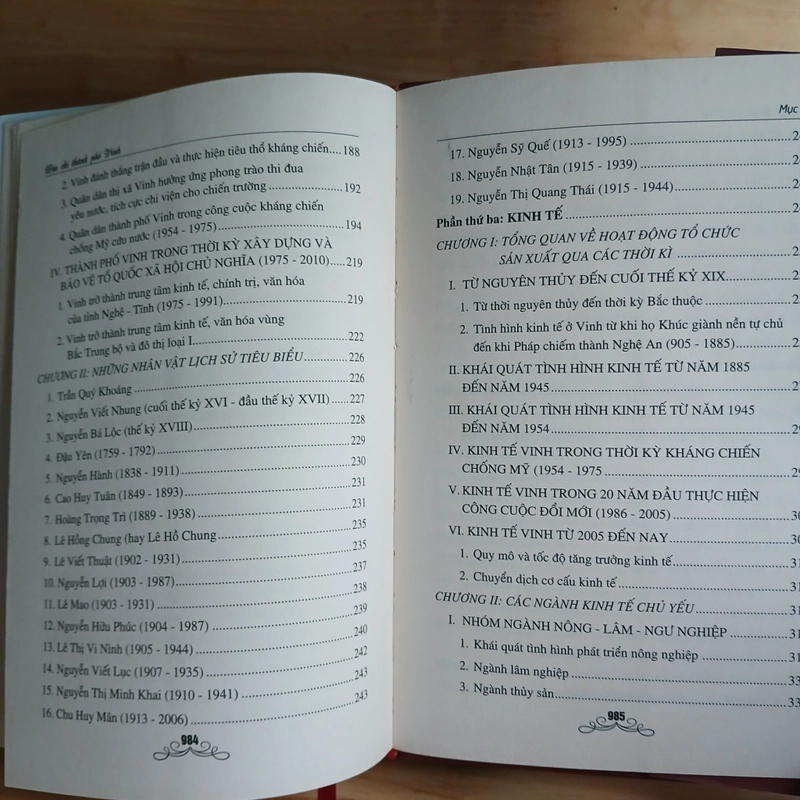 Địa chí thành phố Vinh
2. Vinh đánh thắng trận đầu và thực hiện tiêu thổ kháng chiến.....188
3. Quân dân thị xã Vinh hưởng ứng phong trào thi đua
yêu nước, tích cực chi viện cho chiến trường ..... 192
4. Quân dân thành phố Vinh trong công cuộc kháng chiến
chống Mỹ cứu nước (1954 - 1975) ..... 194
IV. THÀNH PHỐ VINH TRONG THỜI KỲ XÂY DỰNG VÀ
BẢO VỆ TỔ QUỐC XÃ HỘI CHỦ NGHĨA (1975 - 2010) .....219
1. Vinh trở thành trung tâm kinh tế, chính trị, văn hóa
của tỉnh Nghệ - Tĩnh (1975 - 1991).....219
2. Vinh trở thành trung tâm kinh tế, văn hóa vùng
Bắc Trung bộ và đô thị loại I..... 222
CHƯƠNG II: NHỮNG NHÂN VẬT LỊCH SỬ TIÊU BIỂU.....226
1. Trần Quý Khoáng.....226
2. Nguyễn Viết Nhung (cuối thế kỷ XVI - đầu thế kỷ XVII) .....227
3. Nguyễn Bá Lộc (thế kỷ XVIII).....228
4. Đậu Yên (1759 - 1792) .....229
5. Nguyễn Hành (1838 - 1911).....230
6. Cao Huy Tuân (1849 - 1893).....231
7. Hoàng Trọng Trì (1889 - 1938).....231
8. Lê Hồng Chung (hay Lê Hồ Chung .....235
9. Lê Viết Thuật (1902 - 1931).....235
10. Nguyễn Lợi (1903 - 1987).....237
11. Lê Mao (1903 - 1931).....238
12. Nguyễn Hữu Phúc (1904 - 1987).....239
13. Lê Thị Vi Ninh (1905 - 1944).....240
14. Nguyễn Viết Lục (1907 - 1935).....242
15. Nguyễn Thị Minh Khai (1910 - 1941).....243
16. Chu Huy Mân (1913 - 2006).....243
984
Mục
17. Nguyễn Sỹ Quế (1913 - 1995).....2
18. Nguyễn Nhật Tân (1915 - 1939).....2
19. Nguyễn Thị Quang Thái (1915 - 1944).....2
Phần thứ ba: KINH TẾ.....2
CHƯƠNG I: TỔNG QUAN VỀ HOẠT ĐỘNG TỔ CHỨC
SẢN XUẤT QUA CÁC THỜI KÌ.....2
I. TỪ NGUYÊN THỦY ĐẾN CUỐI THẾ KỶ XIX.....2
1. Từ thời nguyên thủy đến thời kỳ Bắc thuộc.....2
2. Tình hình kinh tế ở Vinh từ khi họ Khúc giành nền tự chủ
đến khi Pháp chiếm thành Nghệ An (905 - 1885).....2
II. KHÁI QUÁT TÌNH HÌNH KINH TẾ TỪ NĂM 1885
ĐẾN NĂM 1945.....2
III. KHÁI QUÁT TÌNH HÌNH KINH TẾ TỪ NĂM 1945
ĐẾN NĂM 1954.....29
IV. KINH TẾ VINH TRONG THỜI KỲ KHÁNG CHIẾN
CHỐNG MỸ (1954 - 1975.....29
V. KINH TẾ VINH TRONG 20 NĂM ĐẦU THỰC HIỆN
CÔNG CUỘC ĐỔI MỚI (1986 - 2005).....30
VI. KINH TẾ VINH TỪ 2005 ĐẾN NAY.....30
1. Quy mô và tốc độ tăng trưởng kinh tế.....31
2. Chuyển dịch cơ cấu kinh tế.....31
CHƯƠNG II: CÁC NGÀNH KINH TẾ CHỦ YẾU.....31
I. NHÓM NGÀNH NÔNG - LÂM - NGƯ NGHIỆP.....31
1. Khái quát tình hình phát triển nông nghiệp.....31
2. Ngành lâm nghiệp.....33
3. Ngành thủy sản.....33
985